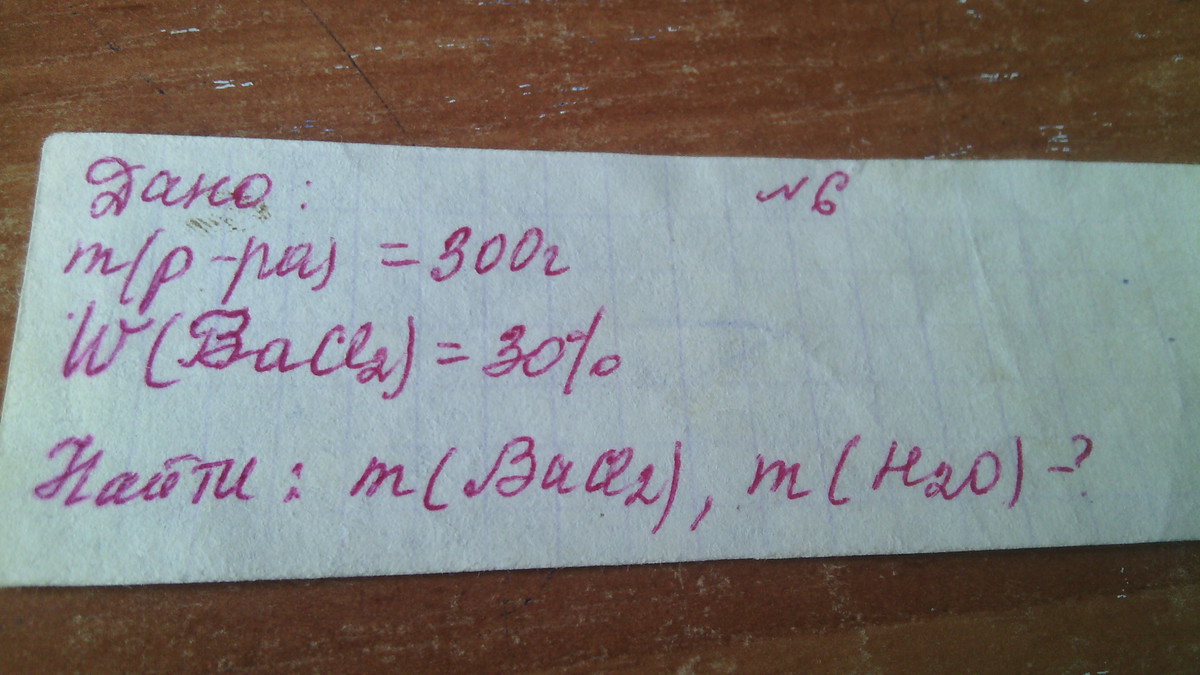 Дано: №6
m(р-ра) = 300г
W(BaCl₂) = 30%
Найти: m(BaCl₂), m(H₂O)-?